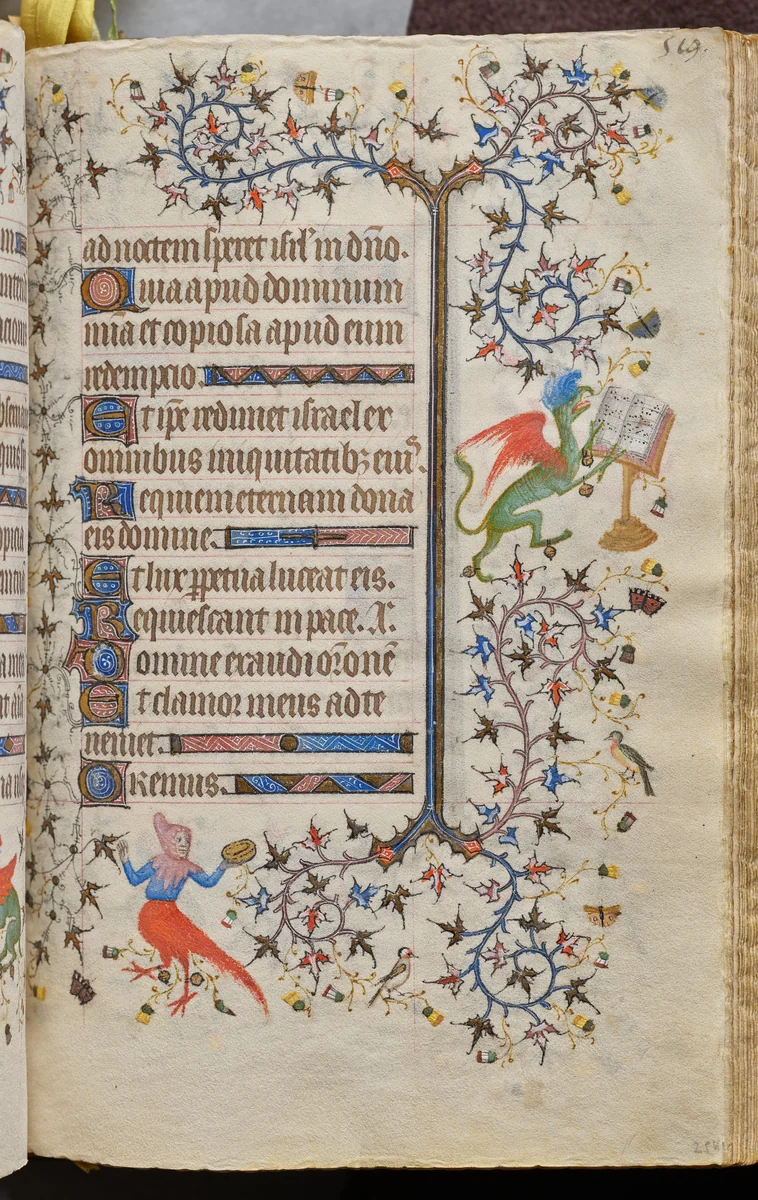 569.
ad noctem speret isrl' in dn̄o.
Quia apud dominum
mīa et copiosa apud eum
redempcio.
Et ip̄e redimet israel ex
omnibus iniquitatibꝫ eius.
Requiem eternam dona
eis domine.
Et lux ꝑpetua luceat eis.
Requiescant in pace. A.
Domine exaudi or̄onē
Et clamor meus ad te
veniet.
Oremus.